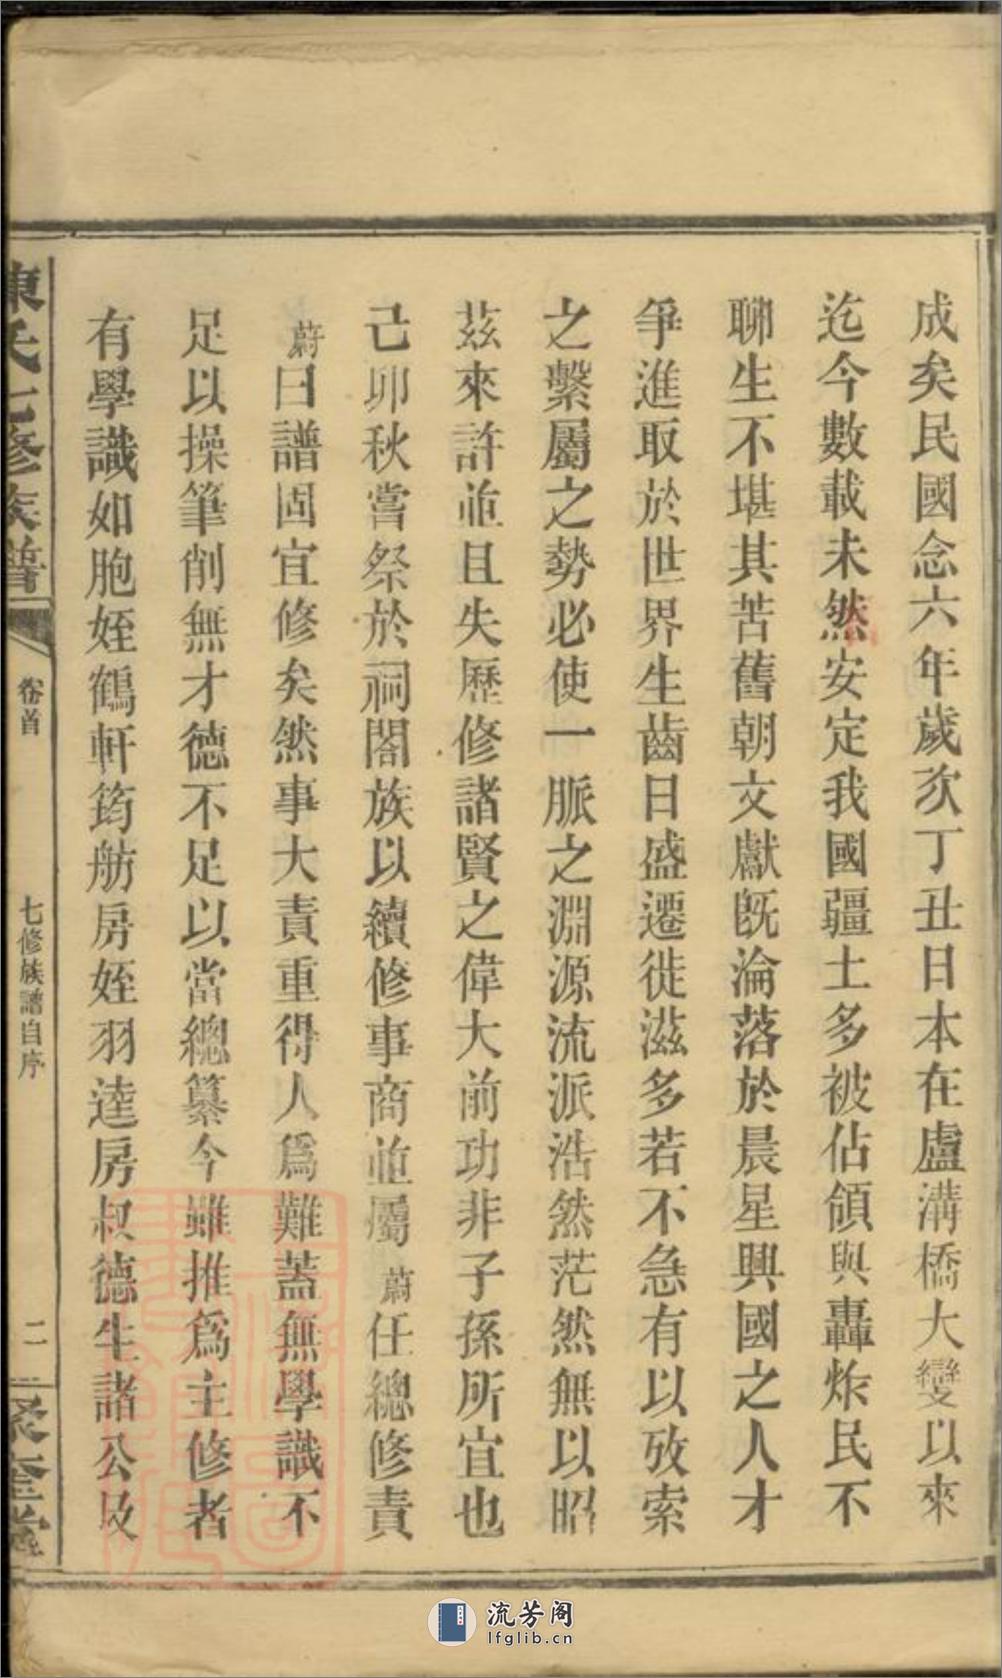 成矣民國念六年歲次丁丑日本在盧溝橋大變以來
迄今數載未然安定我國疆土多被佔領與轟炸民不
聊生不堪其苦舊朝文獻旣淪落於晨星興國之人才
爭進取於世界生齒日盛遷徙滋多若不急有以攷索
之繫屬之勢必使一脈之淵源流派浩然茫然無以昭
茲來許並且失歷修諸賢之偉大前功非子孫所宜也
己卯秋嘗祭於祠閤族以續修事商並屬蔚任總修責
蔚曰譜固宜修矣然事大責重得人爲難蓋無學識不
足以操筆削無才德不足以當總纂今雖推爲主修者
有學識如胞姪鶴軒筠舫房姪羽逵房叔德生諸公及
陳氏七修族譜
卷首
七修族譜自序
二
聚奎堂
流芳阁
lfglib.cn